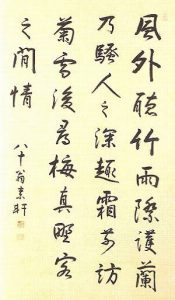 風外聽竹雨際護蘭
乃騷人之深趣霜前訪
菊雪後尋梅真野客
之閒情
八十翁素軒